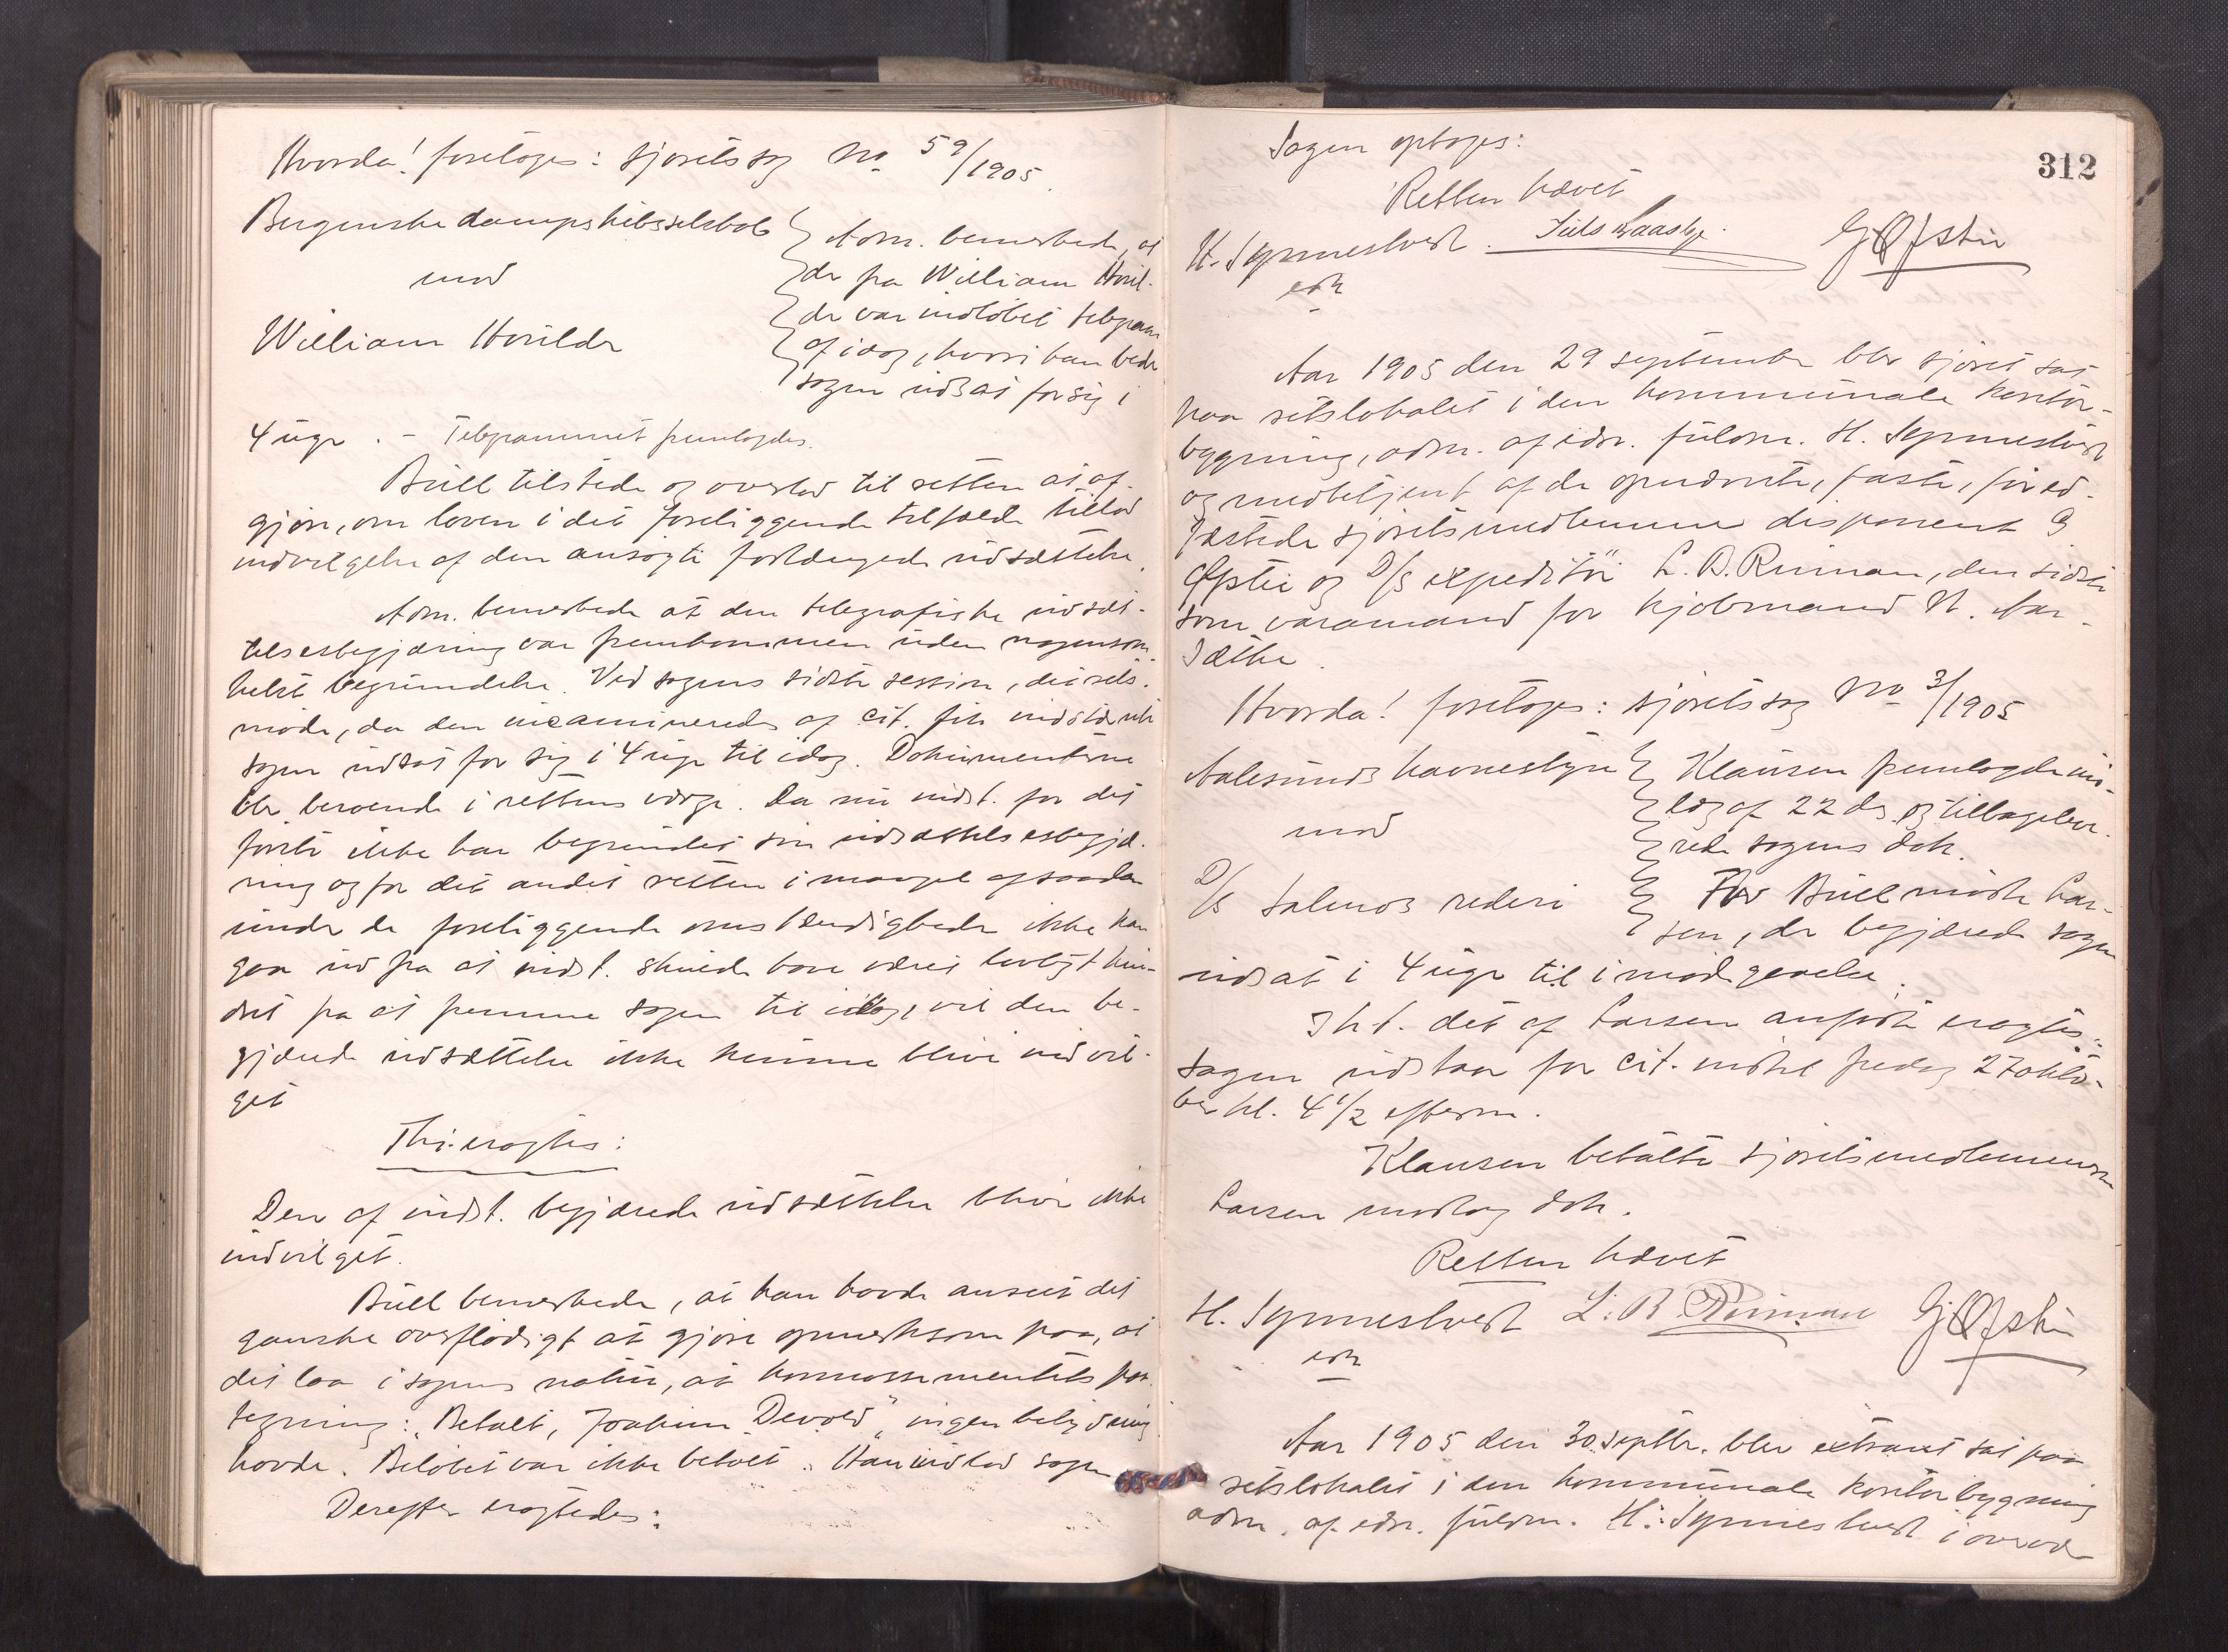 Hvorda! foretoges: sjøretssag No 59/1905.
Bergenske dampskibsselskab
mod
William Hovilde
Adm. bemerkede, at
der fra William Hovil-
de var indløbet telegram
af idag, hvori han beder
sagen udsat for sig i
4 uger. - Telegrammet fremlagdes.
Büll tilstede og overlod til retten at af-
gjøre, om loven i det foreliggende tilfælde tillod
indvilgelse af den ansøgte forlængede udsættelse.
Adm. bemerkede at den telegrafiske udsæt-
telsesbegjæring var fremkommen uden nogensom-
helst begrundelse. Ved sagens sidste session, det rets-
møde, da den incamineredes af cit. fik indstevnte
sagen udsat for sig i 4 uger til idag. Dokumenterne
blev beroende i rettens værge. Da nu indst. for det
første ikke har begrundet sin udsættelsesbegjæ-
ring og for det andet retten i mangel af saadan
under de foreliggende omstændigheder ikke kan
gaa ud fra at indst. skulde have været lovligt hin-
dret fra at fremme sagen til idag, vil den be-
gjærede udsættelse ikke kunne blive indvil-
get
Thi eragtes:
Den af indst. begjærede udsættelse blive ikke
indvilget.
Büll bemerkede, at han havde anseet det
ganske overflødigt at gjøre opmerksom paa, at
det laa i sagens natur, at konnossementets paa-
tegning: "Betalt, Joakim Devold" ingen betydning
havde. Beløbet var ikke betalt. Han indlod sagen
Derefter eragtedes:
312
Sagen optages:
Retten hævet
H. Synnestvedt
edr
G Øfstie
Aar 1905 den 29 september blev sjøret sat
paa retslokalet i den kommunale kontor-
bygning, adm. af edsv. fuldm. H. Synnestvedt
og medbetjent af de opnævnte, faste, i ed
tastede sjøretsmedlemmer disponent G
Øfstie og D/S expeditør L. B. Riiman, den sidste
som varamand for kjøbmand N. Aar-
sæthe.
Hvorda! foretoges: sjøretssag No 3/1905
Aalesunds havnestyre
mod
D/S Salmos rederi
Klausen fremlagde ind-
læg af 22 ds. og tilbagelev-
rede sagens dok.
For Büll mødte Lar-
sen, der begjærede sagen
udsat i 4 uger til imødegaaelse.
I h.t. det af Larsen anførte eragtes:
Sagen udstaar for cit. indtil fredag 27 okto-
ber kl. 4 1/2 efterm.
Klausen betalte sjøretsmedlemmerne
Larsen modtog dok.
Retten hævet
H. Synnestvedt
edr
L. B Riiman
G Øfstie
Aar 1905 den 30. septbr. blev extraret sat paa
retslokalet i den kommunale kontorbygning
adm. af edsv. fuldm. H. Synnestvedt i overvær